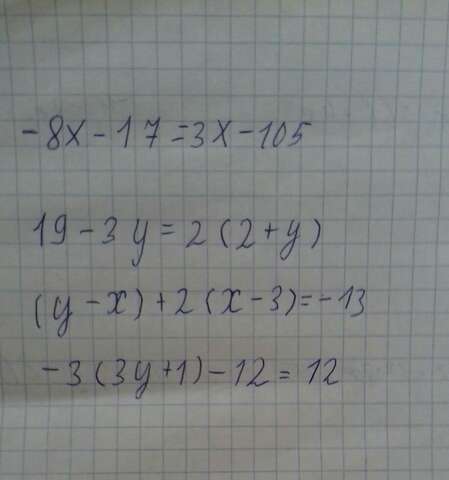 -8x-17=3x-105
19-3y=2(2+y)
(y-x)+2(x-3)=-13
-3(3y+1)-12=12